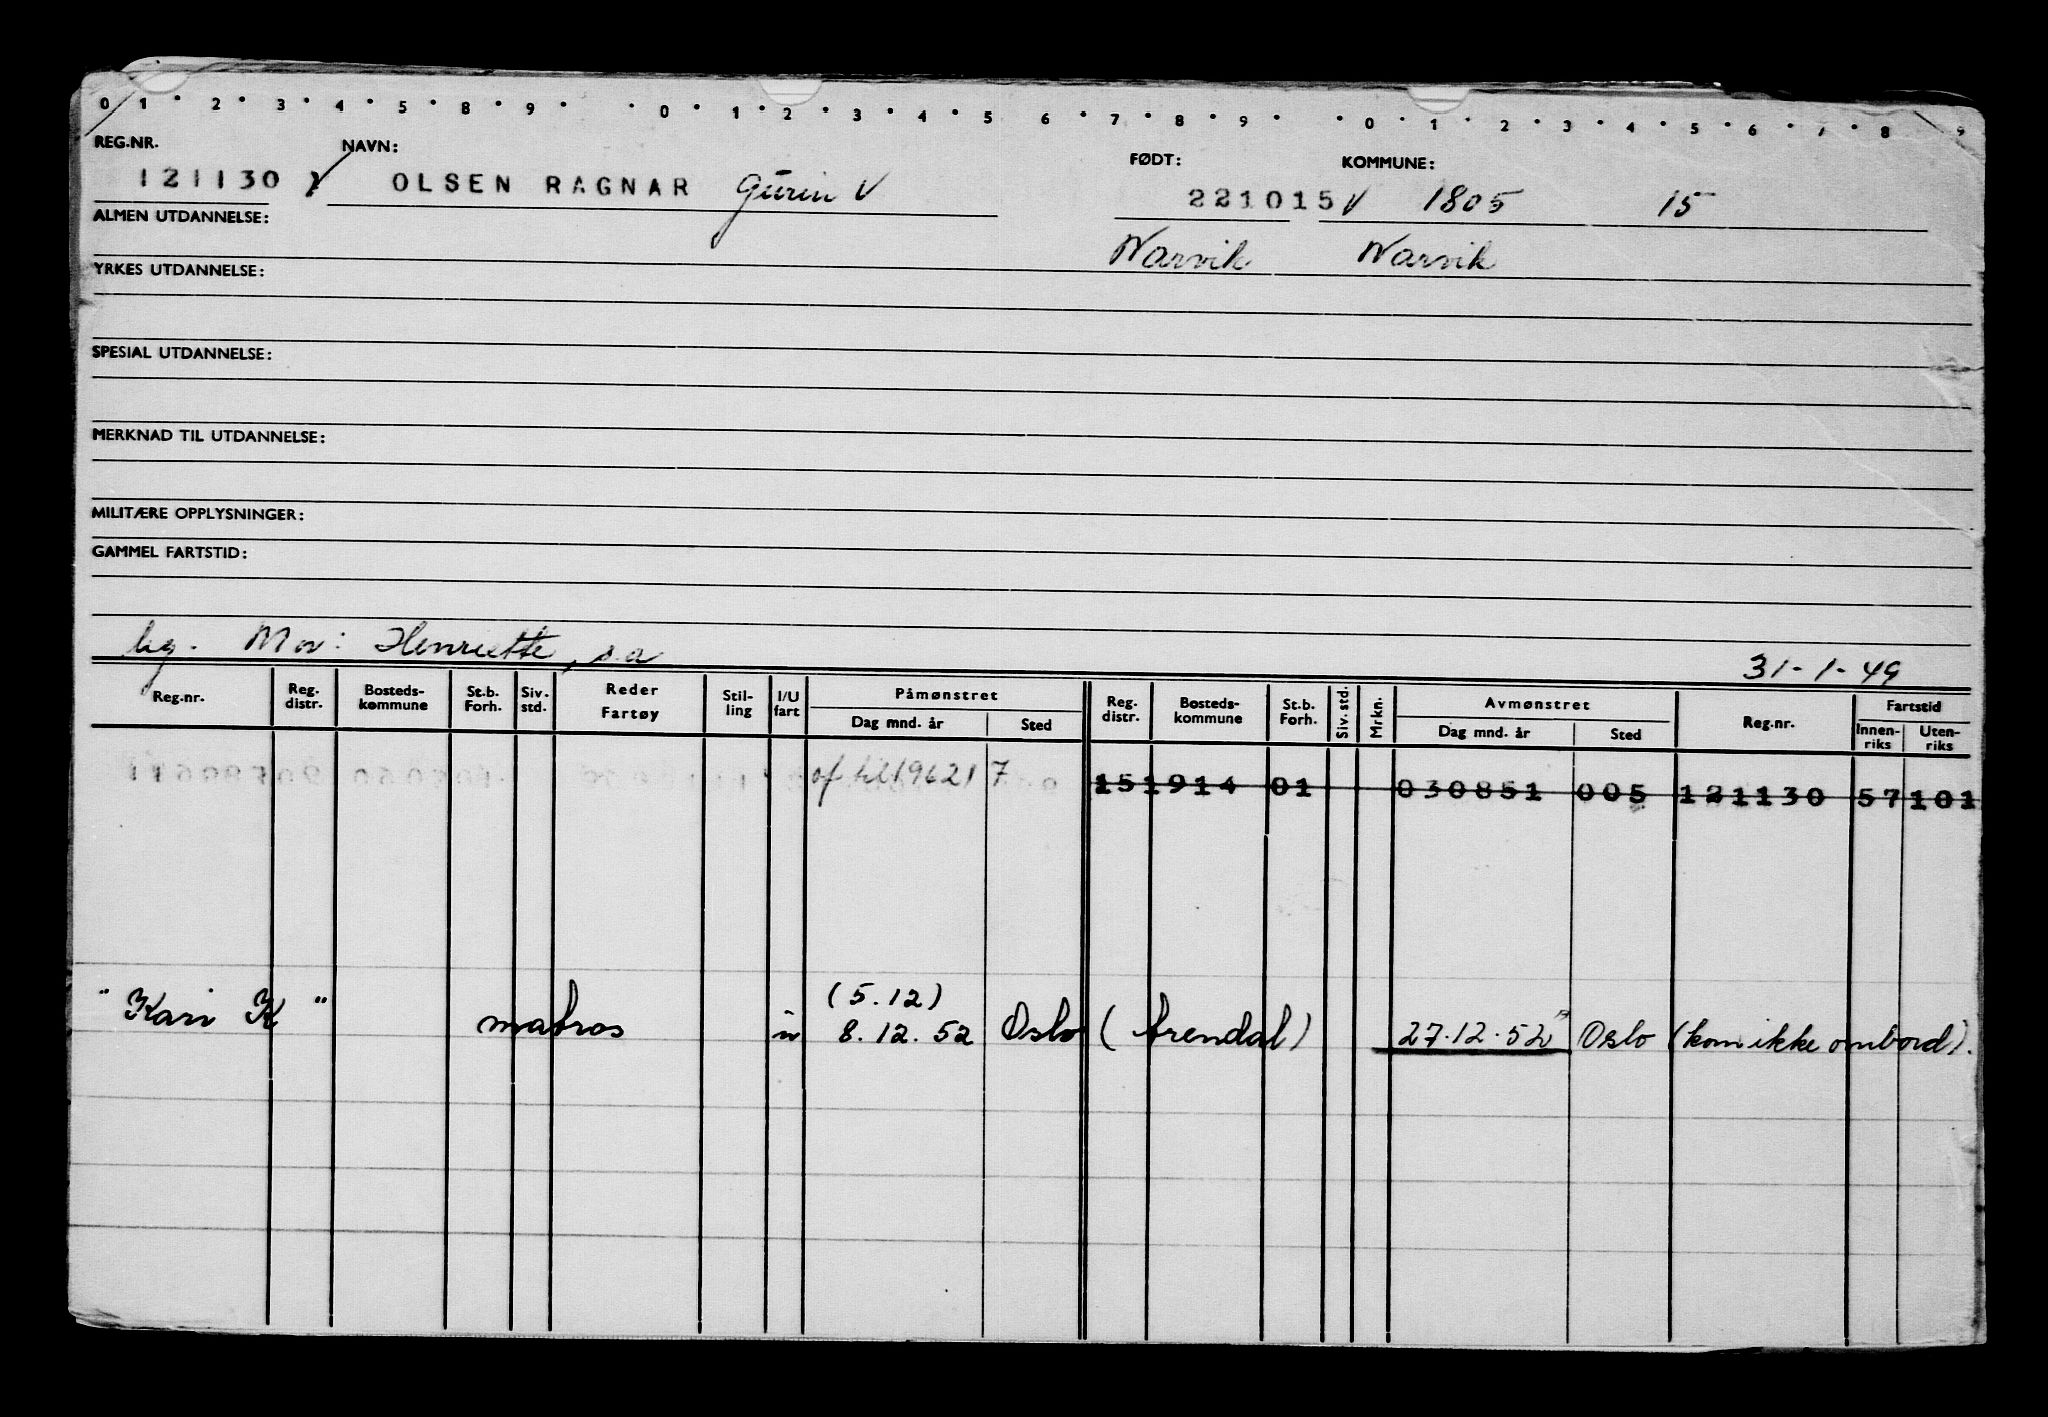 0 1 2 3 4 5 8 9 0 1 2 3 4 5 6 7 8 9 0 1 2 3 4 5 6 7 8 9
REG.NR. NAVN: FØDT: KOMMUNE:
121130 OLSEN RAGNAR 221015 V 1805 15
ALMEN UTDANNELSE:
Narvik Narvik
YRKES UTDANNELSE:
SPESIAL UTDANNELSE:
MERKNAD TIL UTDANNELSE:
MILITÆRE OPPLYSNINGER:
GAMMEL FARTSTID:
ug. Mor: Henriette, s.a 31-1-49
Reg.nr. Reg. distr. Bosteds-kommune St.b. Forh. Siv. std. Reder Fartøy Stil-ling I/U fart Påmønstret Reg. distr. Bosteds-kommune St.b. Forh. Siv. std. Mrkn. Avmønstret Reg.nr. Fartstid
Dag mnd. år Sted Dag mnd. år Sted Innen-riks Uten-riks
of til 196217 151914 01 030851 005 121130 57 101
(5.12)
"Kari K" matros u 8.12.52 Oslo (Arendal) 27.12.52 Oslo (kom ikke ombord).